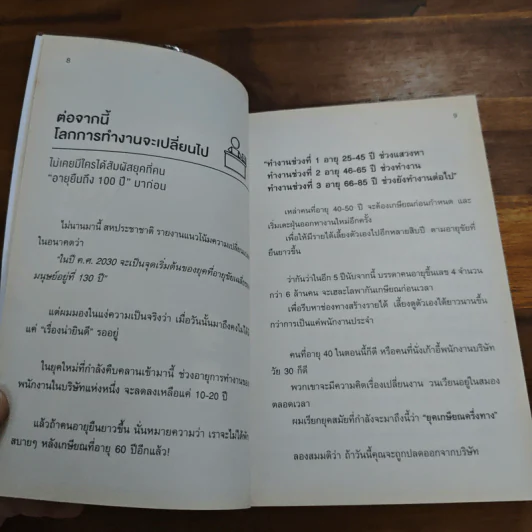 8
ต่อจากนี้
โลกการทำงานจะเปลี่ยนไป
ไม่เคยมีใครได้สัมผัสยุคที่คน
"อายุยืนถึง 100 ปี" มาก่อน
ไม่นานมานี้ สหประชาชาติ รายงานแนวโน้มความเปลี่ยนแปลง
ในอนาคตว่า
"ในปี ค.ศ. 2030 จะเป็นจุดเริ่มต้นของยุคที่อายุขัยเฉลี่ยของ
มนุษย์อยู่ที่ 130 ปี"
แต่ผมมองในแง่ความเป็นจริงว่า เมื่อวันนั้นมาถึงคงไม่ได้
แค่ "เรื่องน่ายินดี" รออยู่
ในยุคใหม่ที่กำลังคืบคลานเข้ามานี้ ช่วงอายุการทำงานของ
พนักงานในบริษัทแห่งหนึ่ง จะลดลงเหลือแค่ 10-20 ปี
แล้วถ้าคนอายุยืนยาวขึ้น นั่นหมายความว่า เราจะไม่ได้พัก
สบายๆ หลังเกษียณที่อายุ 60 ปีอีกแล้ว!
9
"ทำงานช่วงที่ 1 อายุ 25-45 ปี ช่วงแสวงหา
ทำงานช่วงที่ 2 อายุ 46-65 ปี ช่วงทำงาน
ทำงานช่วงที่ 3 อายุ 66-85 ปี ช่วงยังทำงานต่อไป"
เหล่าคนที่อายุ 40-50 ปี จะต้องเกษียณก่อนกำหนด และ
เริ่มเตะฝุ่นออกหางานใหม่อีกครั้ง
เพื่อให้มีรายได้เลี้ยงตัวเองไปอีกหลายสิบปี ตามอายุขัยที่
ยืนยาวขึ้น
ว่ากันว่าในอีก 5 ปีนับจากนี้ บรรดาคนอายุขึ้นเลข 4 จำนวน
กว่า 6 ล้านคน จะเฮละโลพากันเกษียณก่อนเวลา
เพื่อรีบหาช่องทางสร้างรายได้ เลี้ยงดูตัวเองได้ยาวนานขึ้น
กว่าการเป็นแค่พนักงานประจำ
คนที่อายุ 40 ในตอนนี้ก็ดี หรือคนที่นั่งเก้าอี้พนักงานบริษัท
วัย 30 ก็ดี
พวกเขาจะมีความคิดเรื่องเปลี่ยนงาน วนเวียนอยู่ในสมอง
ตลอดเวลา
ผมเรียกยุคสมัยที่กำลังจะมาถึงนี้ว่า "ยุคเกษียณครึ่งทาง"
ลองสมมติว่า ถ้าวันนี้คุณจะถูกปลดออกจากบริษัท